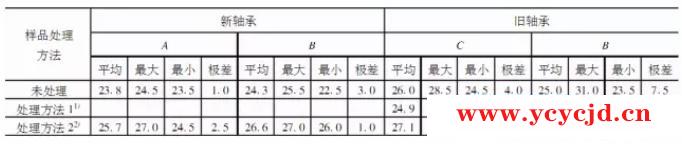 样品处理方法 新轴承 旧轴承
A B C B
平均 最大 最小 极差 平均 最大 最小 极差 平均 最大 最小 极差 平均 最大 最小 极差
未处理 23.8 24.5 23.5 1.0 24.3 25.5 22.5 3.0 26.0 28.5 24.5 4.0 25.0 31.0 23.5 7.5
处理方法 1¹⁾ 24.9
处理方法 2²⁾ 25.7 27.0 24.5 2.5 26.6 27.0 26.0 1.0 27.1
www.ycycjd.cn